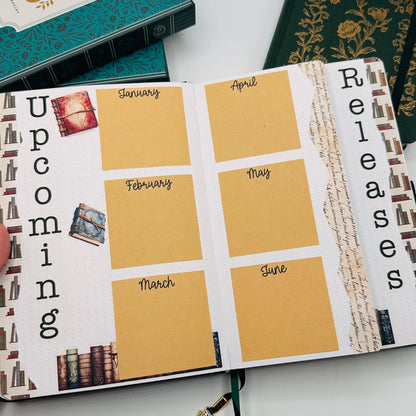 Upcoming
January
February
March
April
May
June
Releases